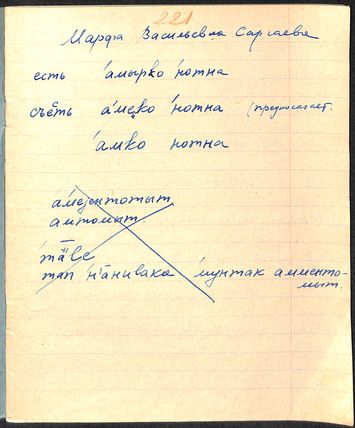 221
Марфа Васильевна Саргаева
есть а́мырко но́тна
съесть а́меко но́тна (предполагает.
а́мко нотна
а́меjентотыт
амтомыт
тав̄е
тап н'а̄нивака мунтак амменто-
мыт.